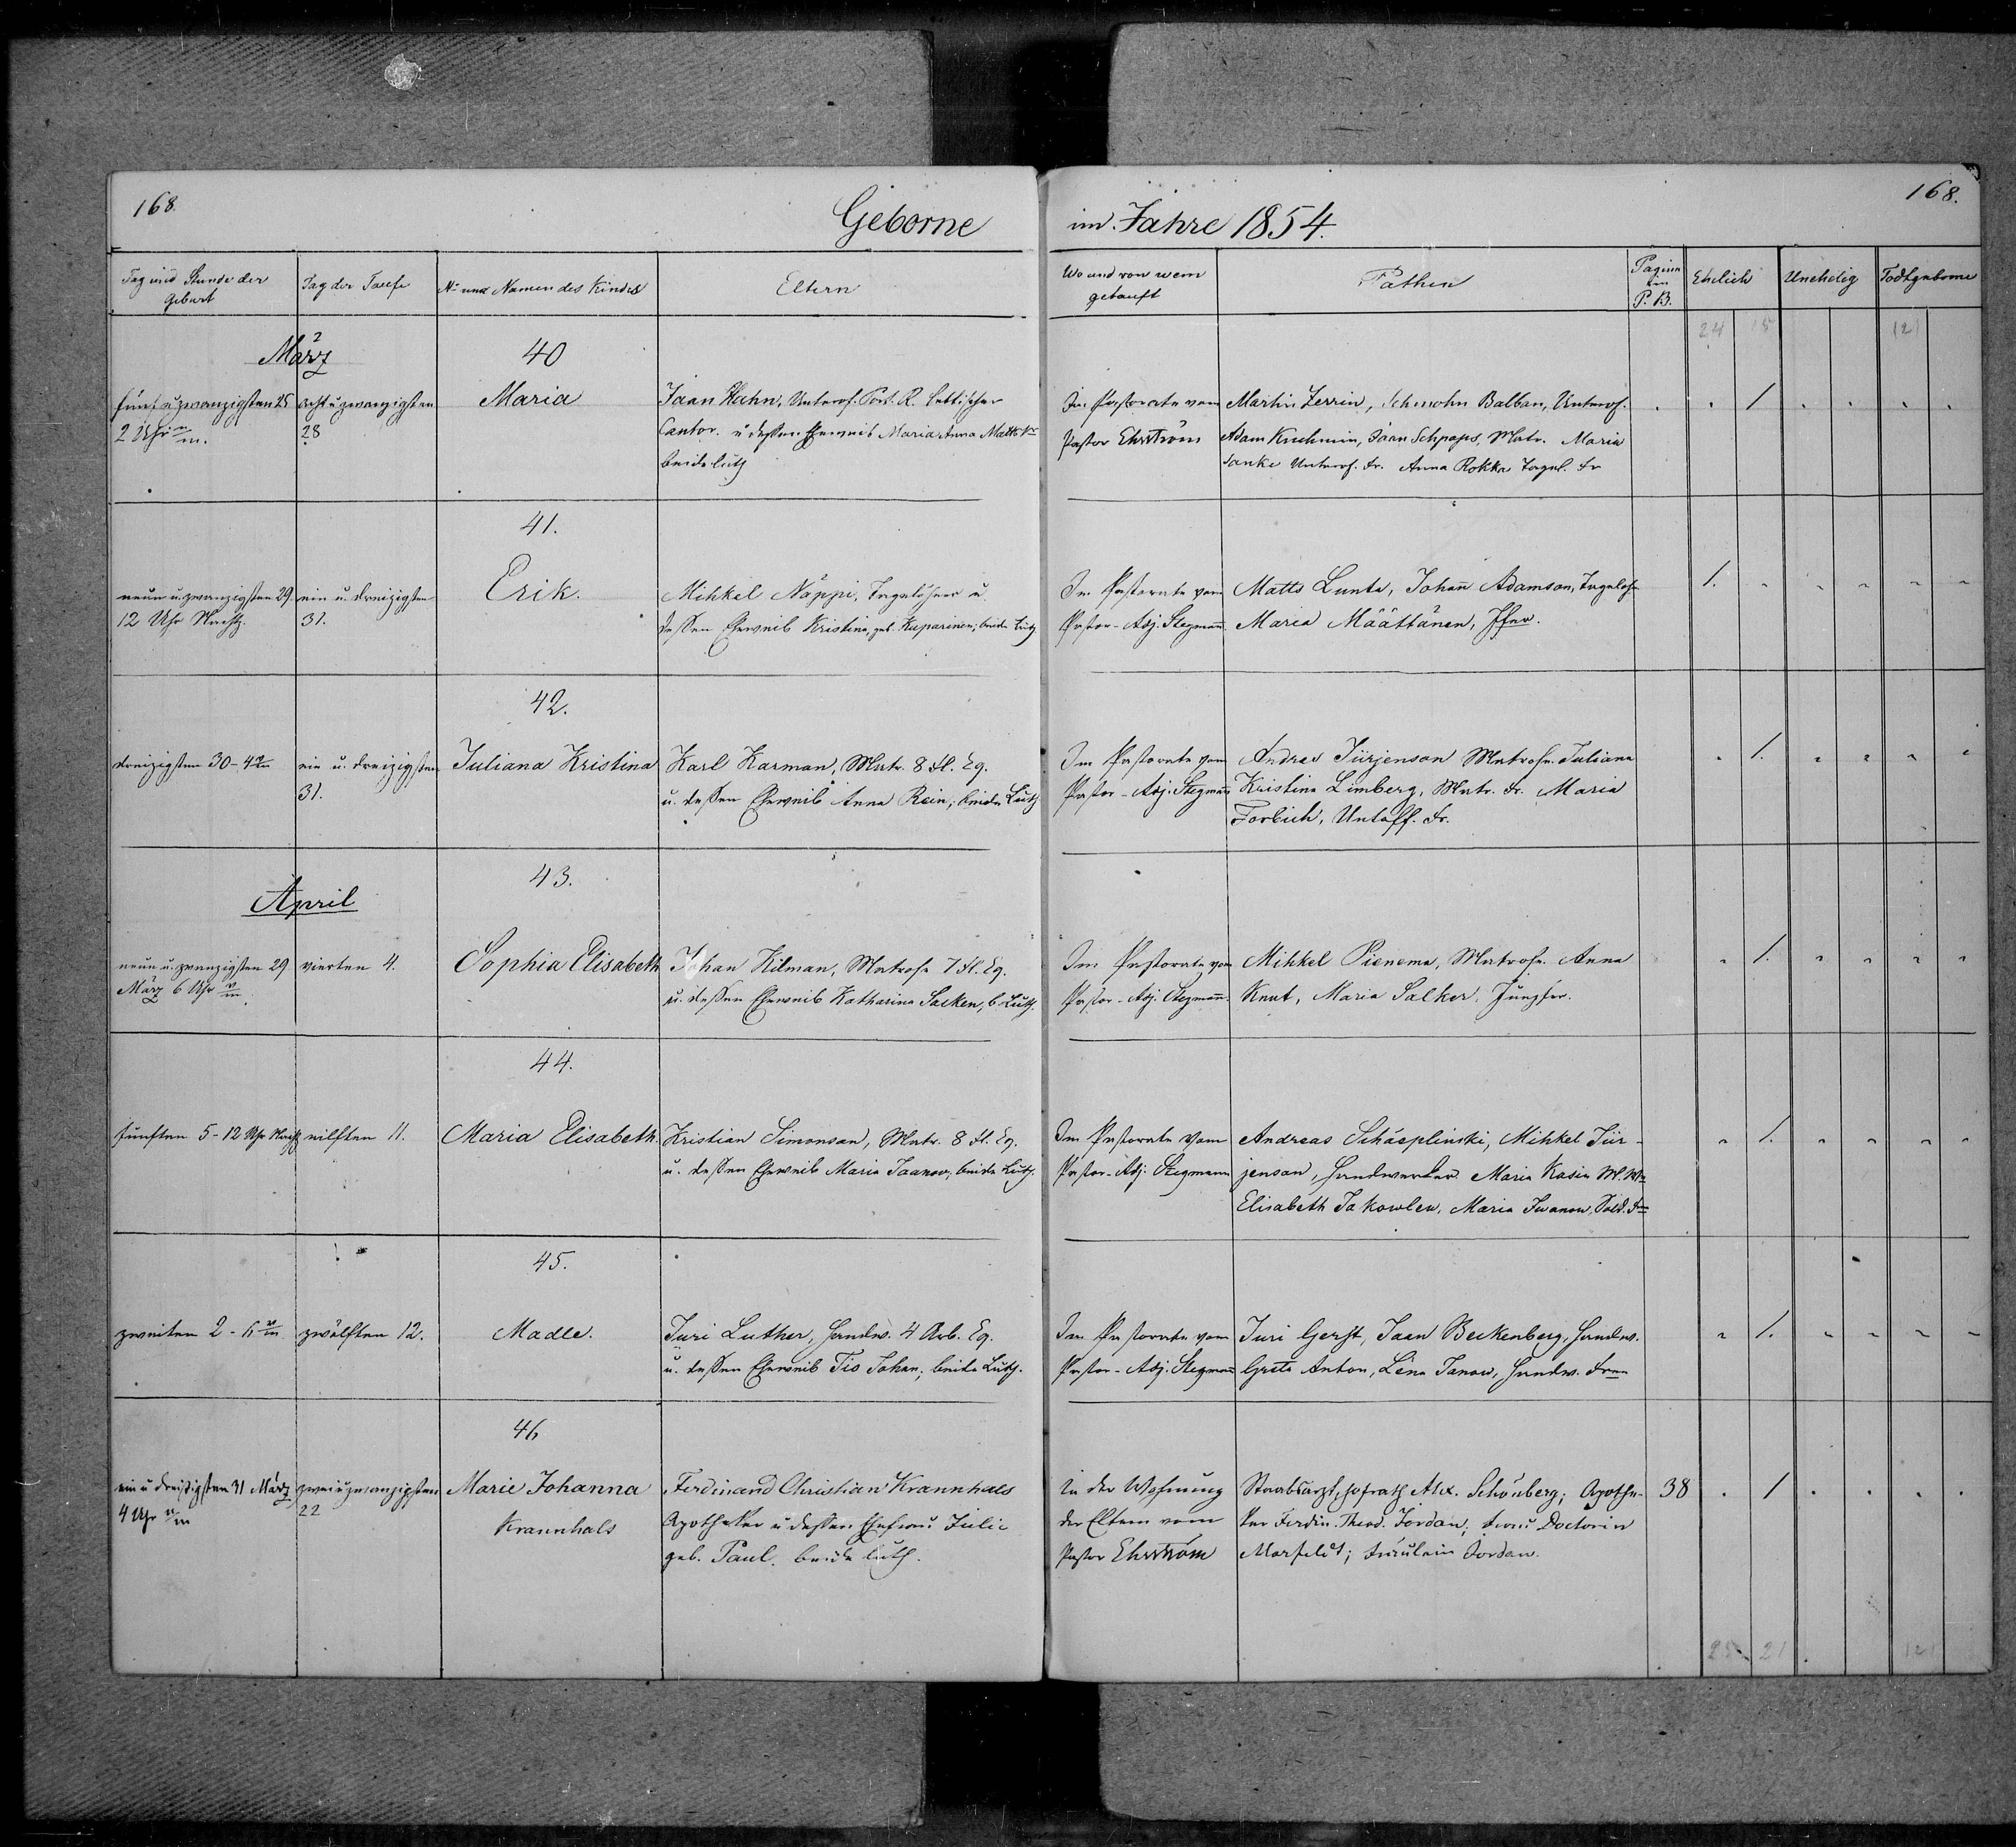 168.
Geborne
im Jahre 1854.
168.
Tag und Stunde der Geburt
Tag der Taufe
No und Namen des Kindes
Eltern
Wo und von wem getauft
Pathen
Pagina P. B.
Ehelich
Unehelig
Todtgeborne
24
12
März
40
fünf u zwanzigsten 25
2 Uhr
acht u zwanzigsten
28
Maria
Jaan Hahn, Unterof. Lettischer
Cantor. u dessen Eheweib Maria Anna
beide luth
Im Pastorate vom
Pastor Ehrström
Martin Zerrin, Schmohn Balban, Unterof.
Adam Jaan Schpaps, Matr. Maria
Sanke Unterof. Fr. Anna Rokka Tagel. Fr
41.
neun u. zwanzigsten 29.
12 Uhr Nachts.
ein u. dreizigsten
31.
Erik.
Mihkel Näppi, Tagelöhner u.
dessen Eheweib Kristina, geb. Kuparinen; beide Luth
Im Pastorate vom
Pastor-Adj. Stegmann.
Matts Lunta, Johan Adamson, Tagelöh
Maria Määttänen, Jfer.
42.
dreizigsten 30-4
ein u. dreizigsten
31.
Juliana Kristina
Karl Karman, Matr. 8 Fl. Eq.
u. dessen Eheweib Anna Rein; beide Luth
Im Pastorate vom
Pastor-Adj. Stegmann
Andres Jürjenson Matrose. Juliana
Kristina Limberg, Matr. Fr. Maria
Forbich, Untoff. Fr.
April
43.
neun u. zwanzigsten 29
März 6 Uhr
vierten 4.
Sophia Elisabeth
Johan Kilman, Matrose 7 Fl. Eq.
u. dessen Eheweib Katharina Sacken, b. Luth.
Im Pastorate von
Pastor-Adj. Stegmann.
Mihkel Pienema, Matrose. Anna
Knut, Maria Salker. Jungfer.
44.
fünften 5-12 Uhr Nachts
eilften 11.
Maria Elisabeth.
Kristian Simonson, Matr. 8 Fl. Eq.
u. dessen Eheweib Maria Jaanow; beide Luth.
Im Pastorate vom
Pastor-Adj. Stegmann
Andreas Schäsplinski, Mihkel Jür-
jenson, Handwerker Maria Kasin M. We
Elisabeth Jakowlew, Maria Iwanow, Sold. Frn
45.
zweiten 2-6
zwölften 12.
Madle.
Juri Luther, Handw. 4 Arb. Eq.
u. dessen Eheweib Tio Johan; beide Luth.
Im Pastorate vom
Pastor-Adj. Stegmann
Juri Gerst, Jaan Beckenberg, Handw.
Greta Anton, Lena Janow, Handw. Fren
46
ein u dreißigsten 31 März
4 Uhr
zwei u zwanzigsten
22
Marie Johanna
Krannhals
Ferdinand Christian Krannhals
Apotheker u dessen Ehefrau Julie
geb. Paul. beide luth.
In der Wohnung
der Eltern vom
Pastor Ehrström
Staabsarzt, Hofrath Alex. Schönberg; Apothe-
ker Ferdin. Theod. Jordan; Frau Doctorin
Marfeldt; Fräulein Jordan.
38
21
12